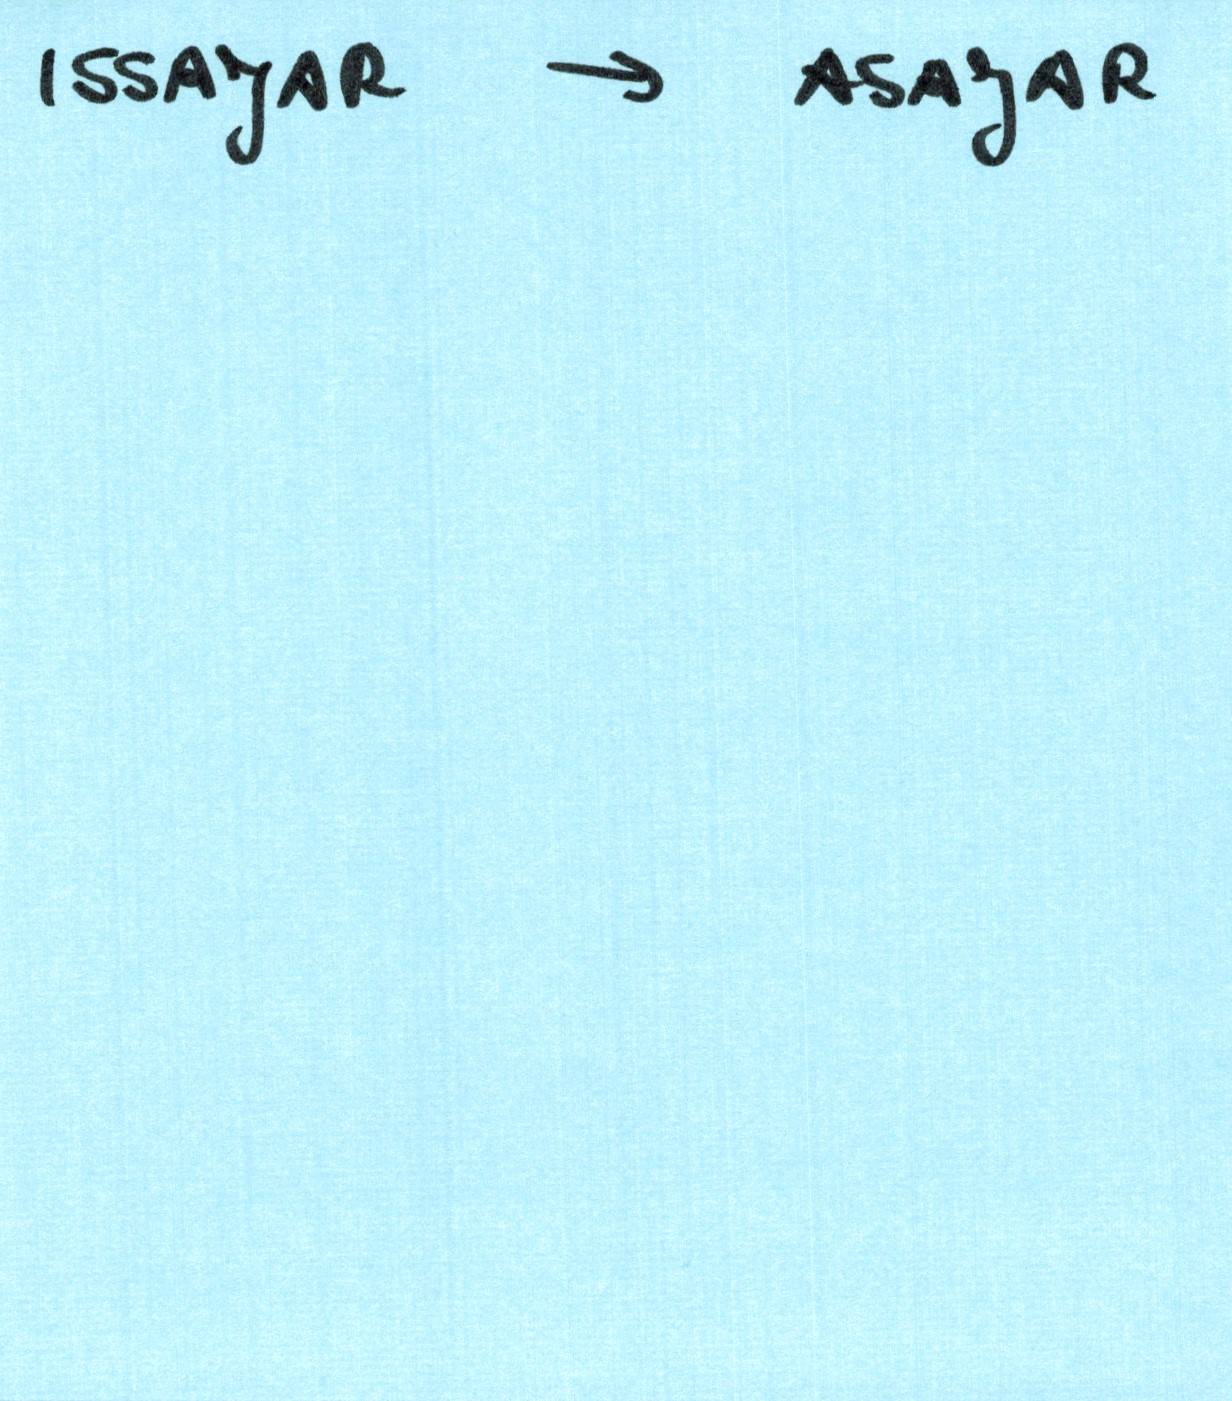 ISSAYAR → ASAYAR